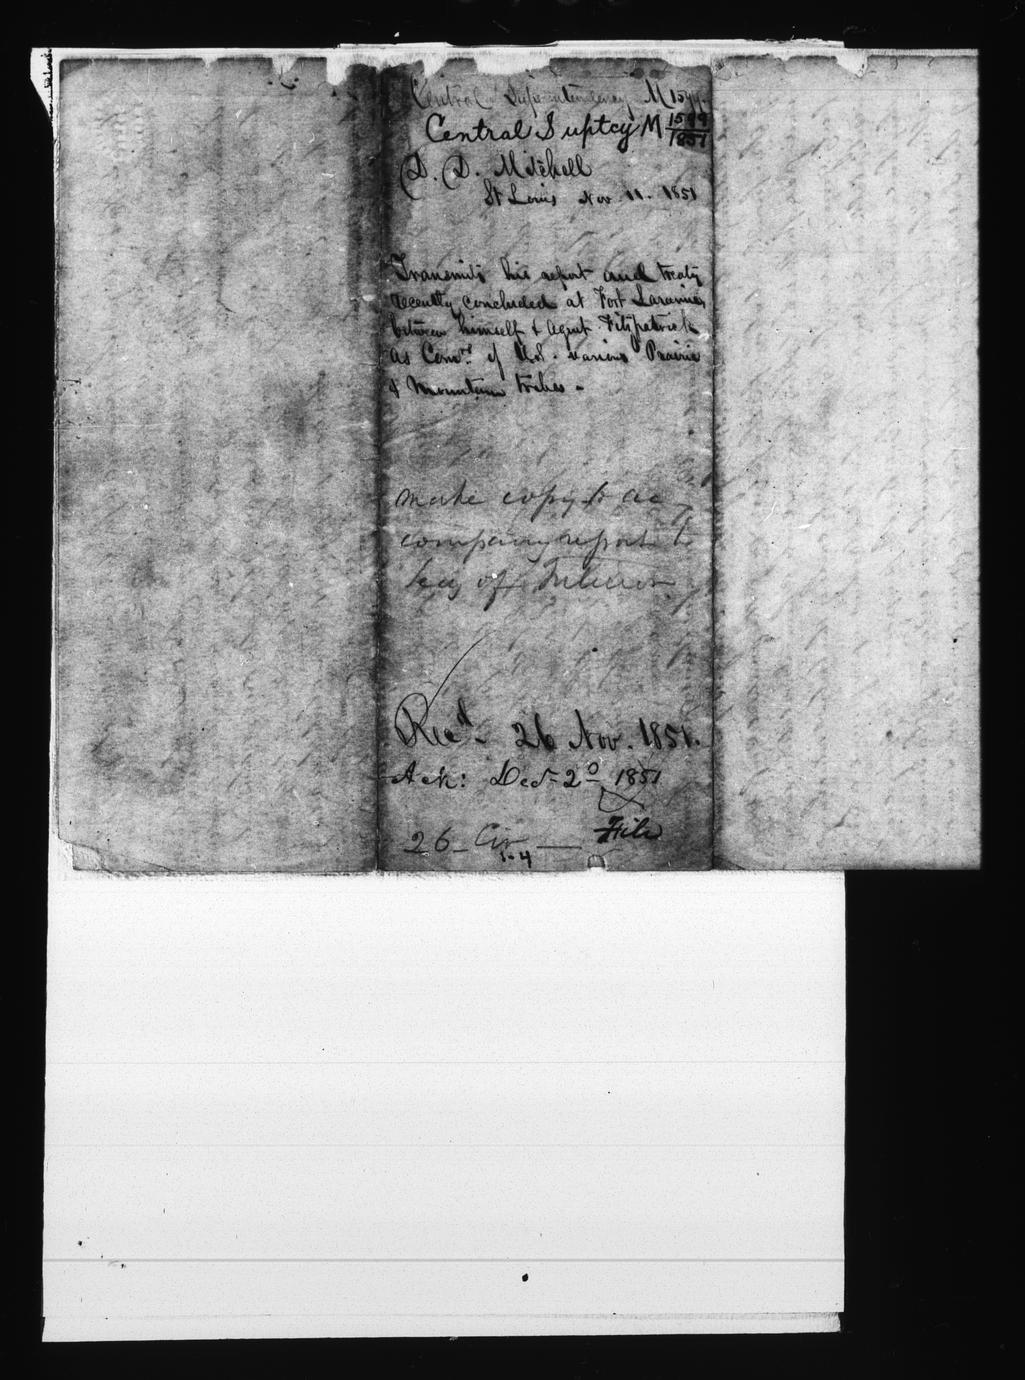 Central Superintendency M 1599.
Central Suptcy M 1599/1851
D. D. Mitchell
St Louis Nov. 11. 1851
Transmits his report and treaty
recently concluded at Fort Laramie,
between himself & Agent Fitzpatrick
as Comrs. of U.S. various Prairie
& Mountain tribes -
make copy to ac
company report to
Secy of Interior
Recd. 26 Nov. 1851.
Ack: Dec 2d 1851
File
26
1-4